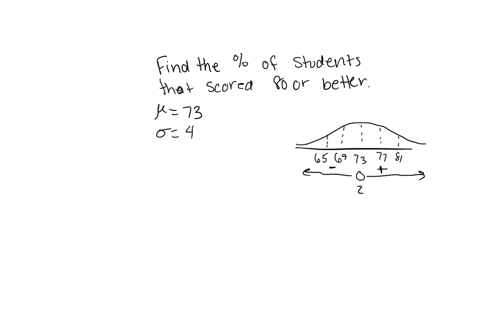 Find the % of students
that scored 80 or better.
μ = 73
σ = 4
65 69 73 77 81
- +
0
z